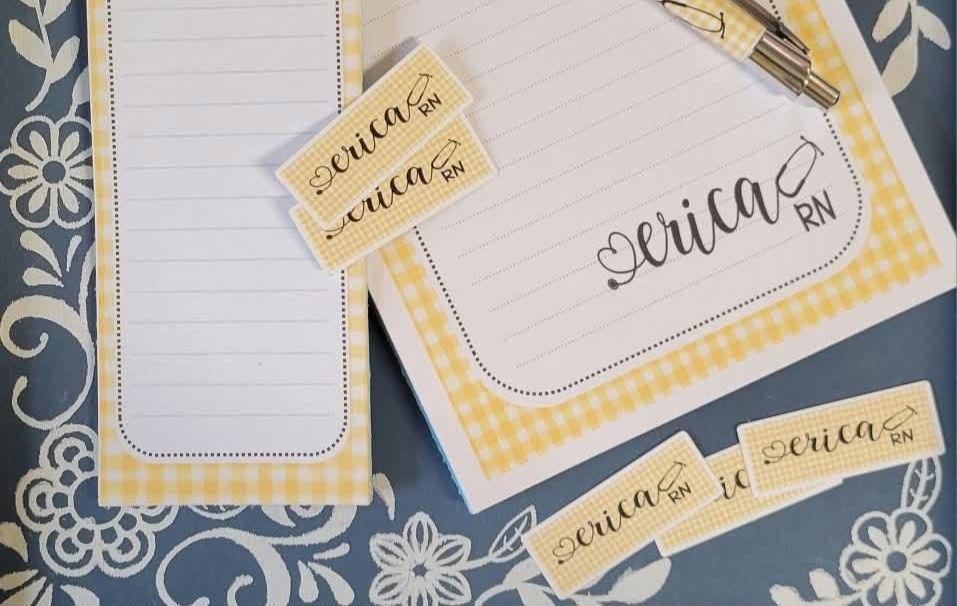 erica
RN
erica
RN
erica
RN
erica
RN
ic
erica
RN